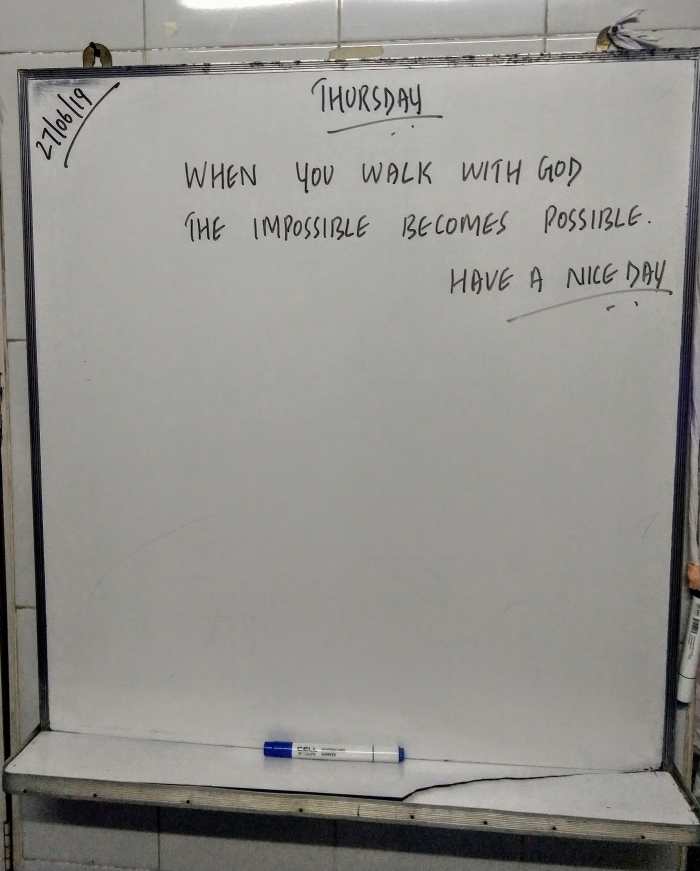 27/06/19
THURSDAY
WHEN YOU WALK WITH GOD
THE IMPOSSIBLE BECOMES POSSIBLE.
HAVE A NICE DAY
CELL